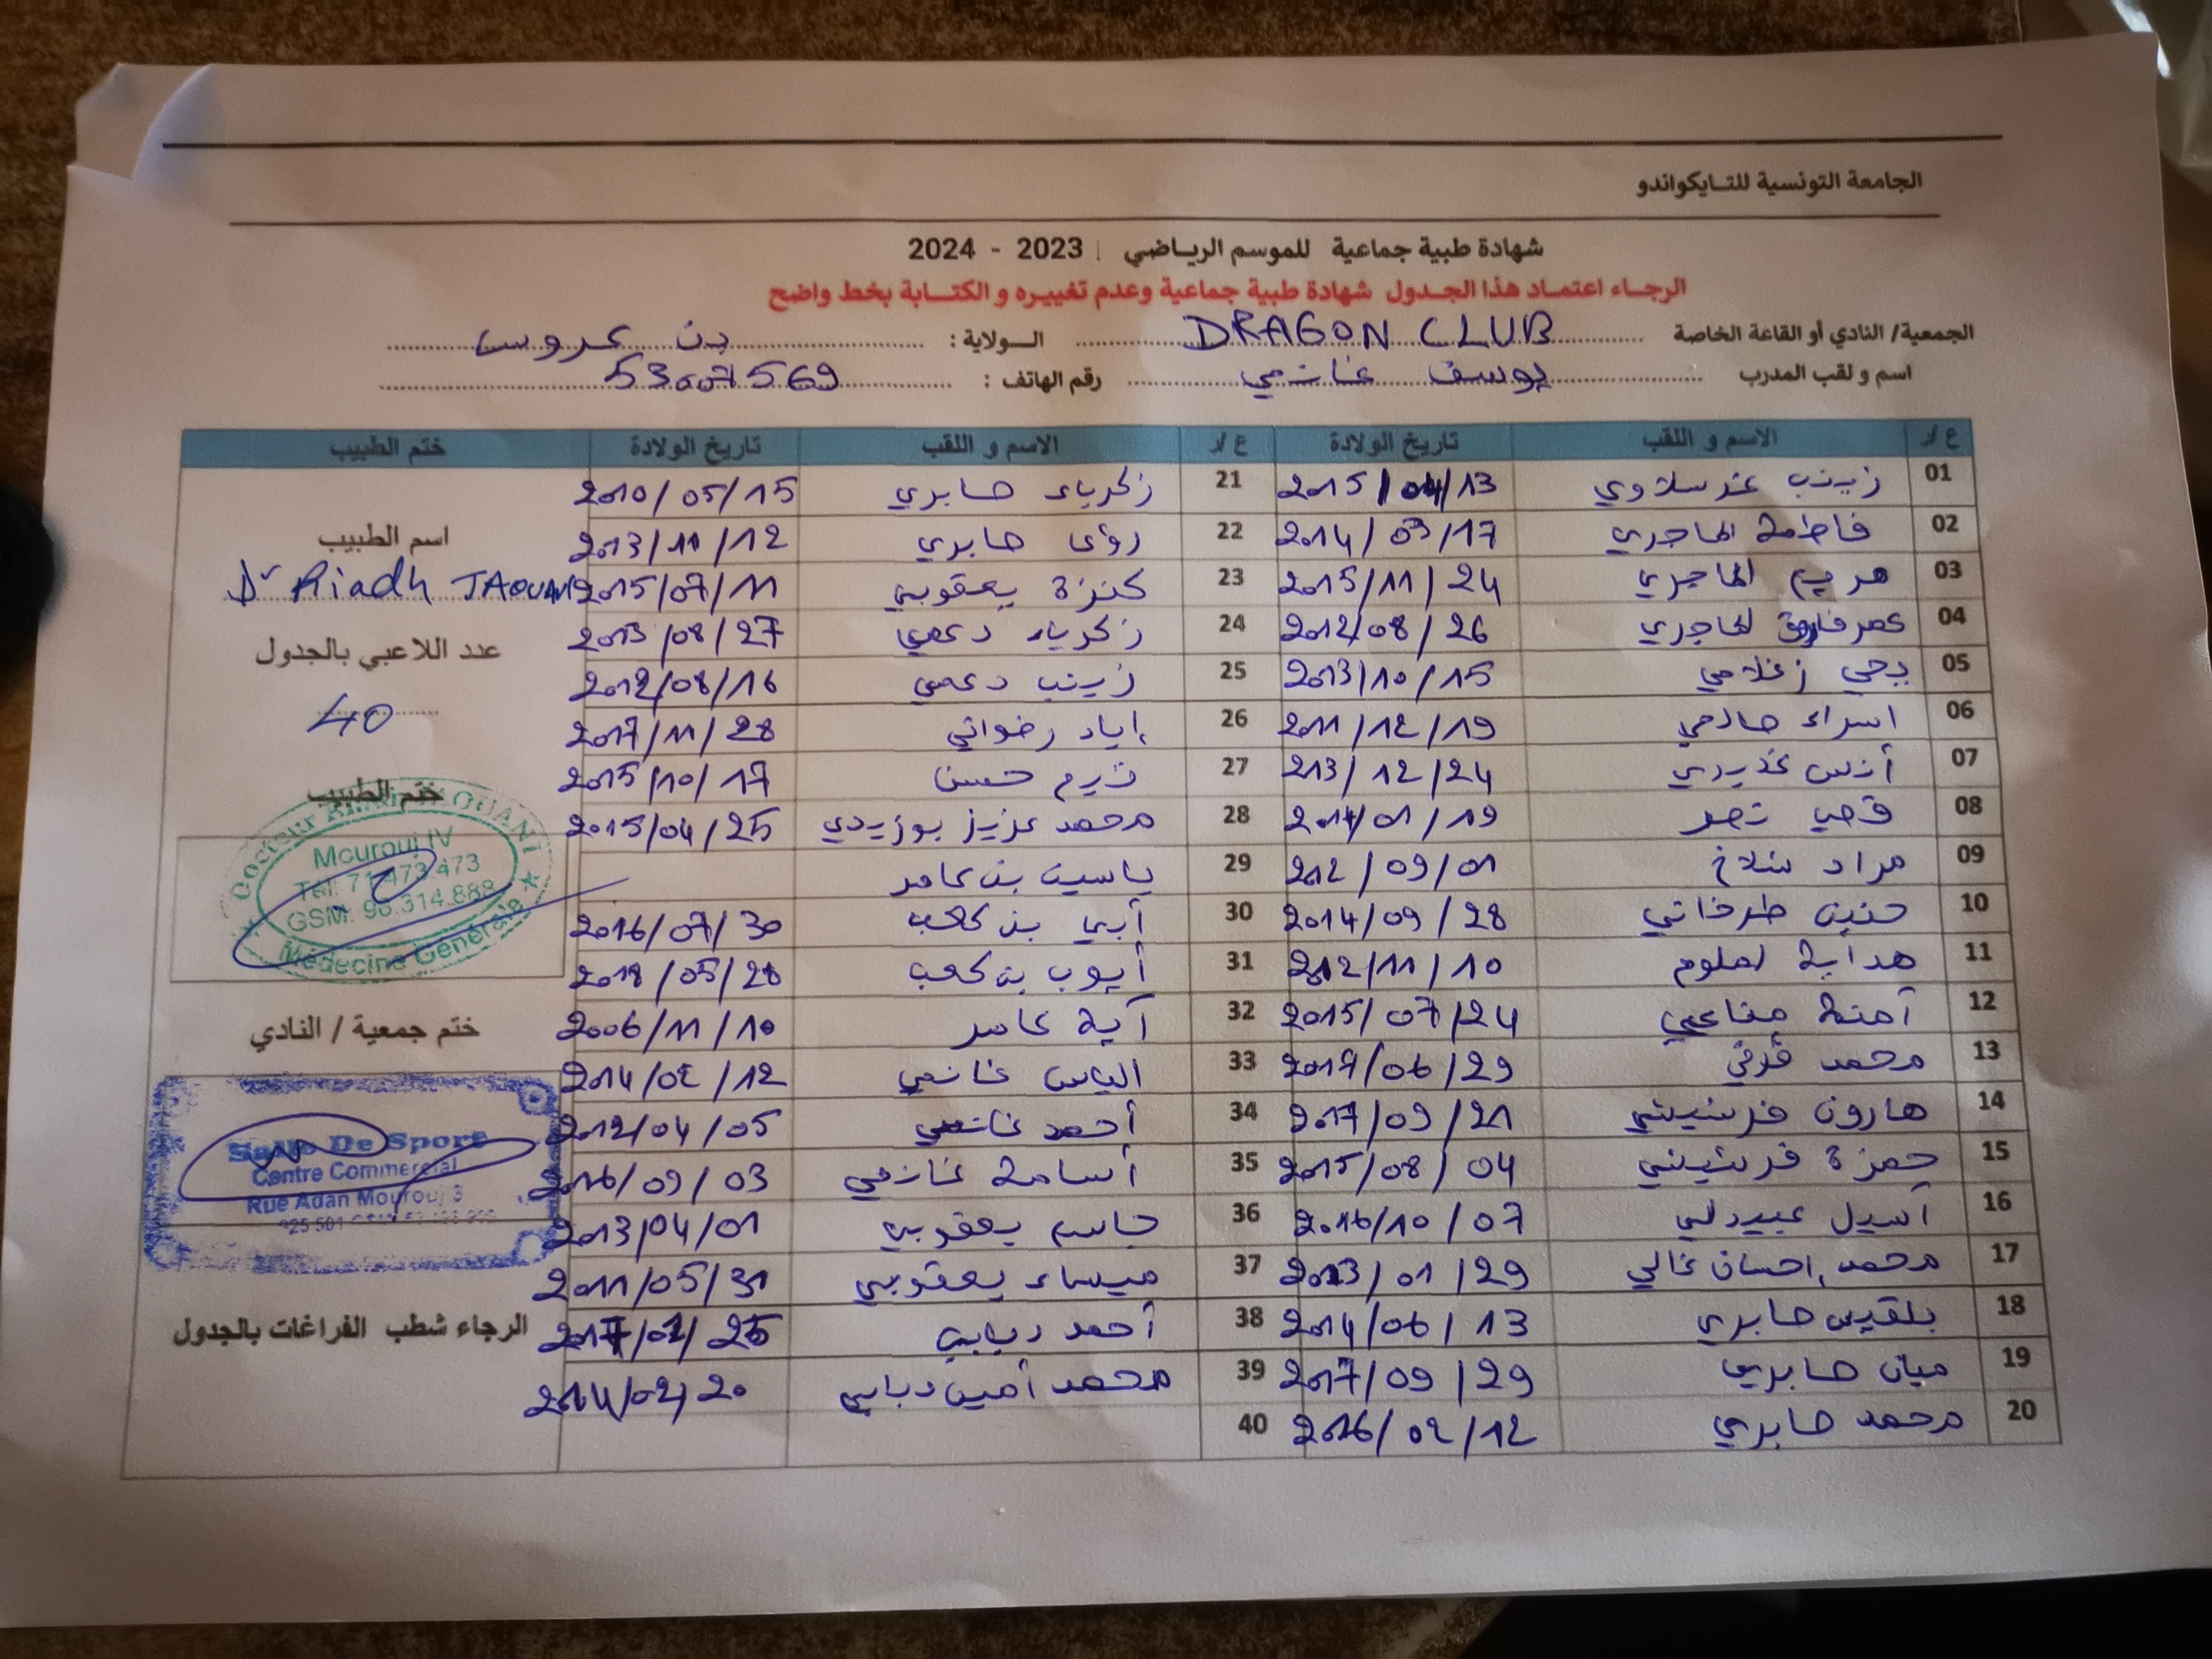 الجامعة التونسية للتـايكواندو
شهادة طبية جماعية للموسم الرياضي 2023 - 2024
الرجـاء اعتمـاد هذا الجـدول شهادة طبية جماعية وعدم تغييـره و الكتـابة بخط واضح
الجمعية/ النادي أو القاعة الخاصة DRAGON CLUB الـولاية : بن عروس
اسم و لقب المدرب يوسف غانمي رقم الهاتف : 53007569
ع/ر الاسم و اللقب تاريخ الولادة ع/ر الاسم و اللقب تاريخ الولادة ختم الطبيب
01 زينب عندسلاوي 2015/04/13 21 زكرياء صابري 2010/05/15
02 فاطمة الهاجري 2014/03/17 22 رؤى صابري 2013/11/12
03 مريم الهاجري 2015/11/24 23 كنزة يعقوبي 2015/07/11
04 عمر فاروق الهاجري 2012/08/26 24 زكرياء دعمي 2013/08/27
05 يحي زغلامي 2013/10/15 25 زينب دعمي 2012/08/16
06 اسراء صالحي 2011/12/19 26 إياد رضواني 2017/11/28
07 أنس 213/12/24 27 حسن 2015/10/17
08 قصي نصر 2014/01/19 28 محمد عزيز بوزيدي 2015/04/25
09 مراد 212/09/01 29 ياسين بن عامر
10 حنين طرخاني 2014/09/28 30 أبي بن كعب 2016/07/30
11 هداية لملوم 2012/11/10 31 أيوب بن كعب 2018/05/28
12 آمنة مناعي 2015/07/24 32 آية عامر 2006/11/10
13 محمد 2017/06/29 33 الياس غانمي 2014/02/12
14 هارون فرشيشي 2017/09/21 34 أحمد غانمي 2012/04/05
15 حمزة فرشيشي 2015/08/04 35 أسامة غانمي 2016/09/03
16 أسيل عبيدلي 2016/10/07 36 جاسم يعقوبي 2013/04/01
17 محمد إحسان غالي 2013/01/29 37 ميساء يعقوبي 2011/05/31
18 بلقيس صابري 2014/06/13 38 أحمد دبابي 2017/02/25
19 ميان صابري 2017/09/29 39 محمد أمين دبابي 2014/02/20
20 محمد صابري 2016/02/12 40
اسم الطبيب
Dr Riadh JAOUANI
عدد اللاعبي بالجدول
40
ختم الطبيب
Docteur
Mourouj IV
Tél: 71 473 473
GSM: 98.314.888
Médecine Générale
ختم جمعية / النادي
Salle De Sport
Centre Commercial
Rue Adan Mourouj 3
الرجاء شطب الفراغات بالجدول